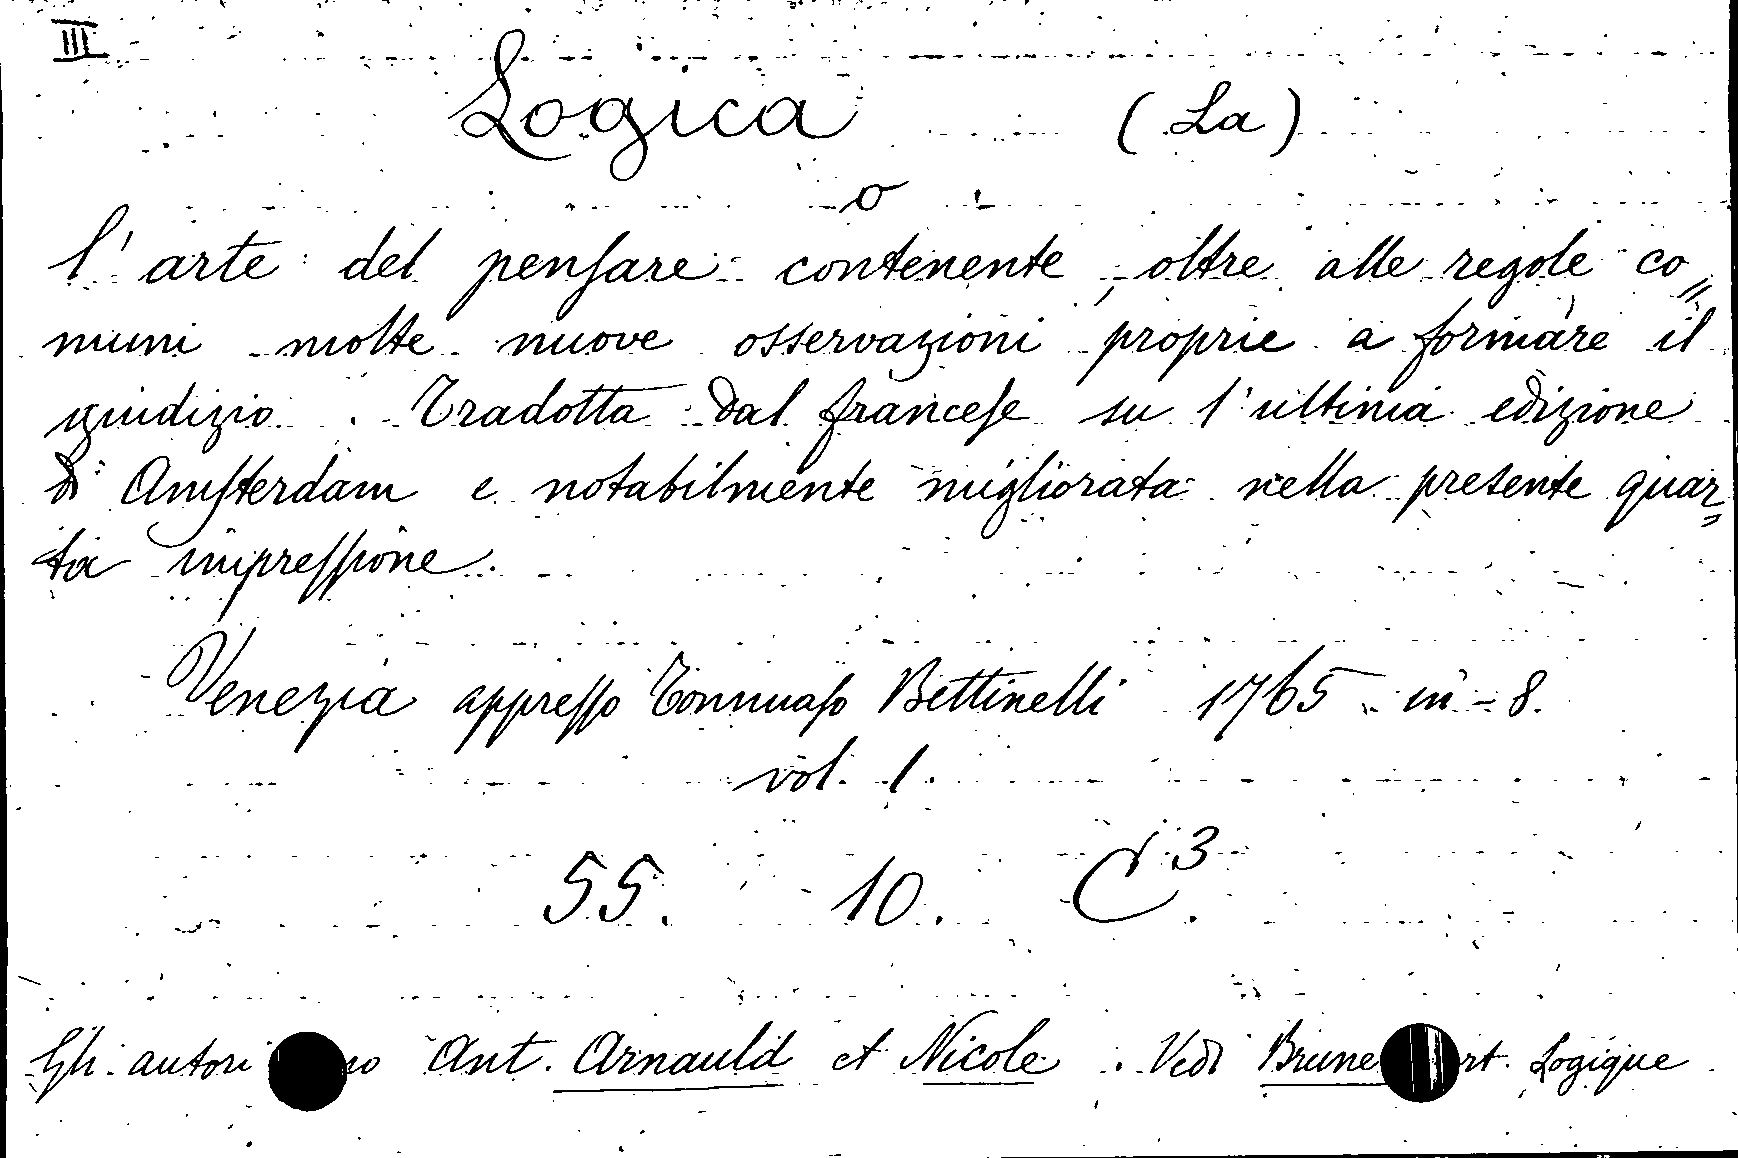 III
Logica (La)
o
l'arte del pensare contenente, oltre alle regole co=
muni molte nuove osservazioni proprie a formare il
giudizio. Tradotta dal francese su l'ultima edizione
di Amsterdam e notabilmente migliorata nella presente quar=
ta impressione.
Venezia appresso Tommaso Bettinelli 1765 in-8.
vol. 1.
55. 10. C3.
Gli autori Ant. Arnauld et Nicole. Vedi Brune rt. Logique